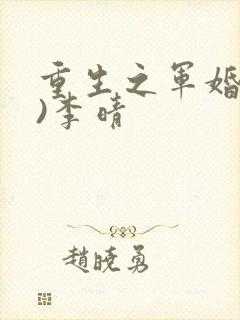 重生之军婚
)李晴
赵晓勇